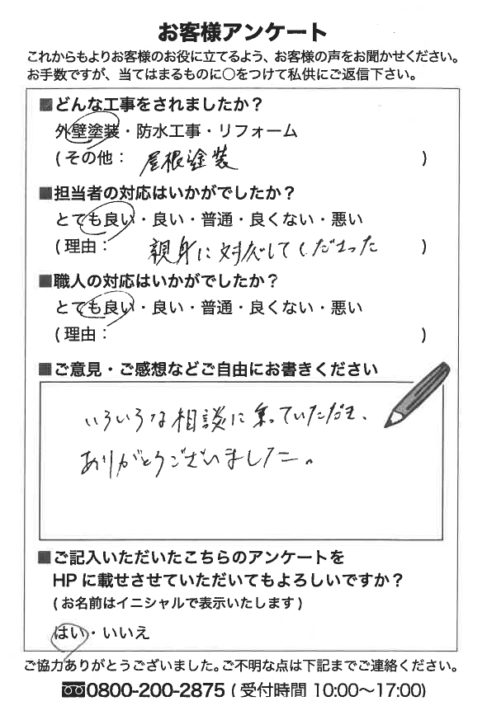 お客様アンケート
これからもよりお客様のお役に立てるよう、お客様の声をお聞かせください。
お手数ですが、当てはまるものに○をつけて私供にご返信下さい。
■どんな工事をされましたか？
外壁塗装・防水工事・リフォーム
(その他： 屋根塗装 )
■担当者の対応はいかがでしたか？
とても良い・良い・普通・良くない・悪い
(理由： 親身に対応してくださった )
■職人の対応はいかがでしたか？
とても良い・良い・普通・良くない・悪い
(理由： )
■ご意見・ご感想などご自由にお書きください
いろいろな相談に乗っていただき、
ありがとうございました。
■ご記入いただいたこちらのアンケートを
HPに載せさせていただいてもよろしいですか？
(お名前はイニシャルで表示いたします)
はい・いいえ
ご協力ありがとうございました。ご不明な点は下記までご連絡ください。
0800-200-2875 (受付時間 10:00〜17:00)